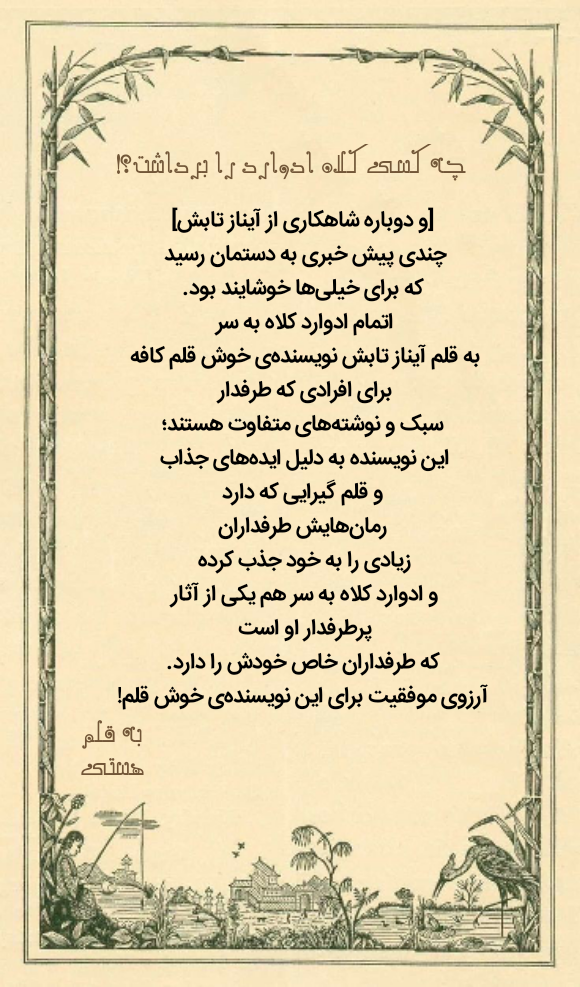 چه کسی کلاه ادوارد را برداشت؟!
[و دوباره شاهکاری از آیناز تابش]
چندی پیش خبری به دستمان رسید
که برای خیلی‌ها خوشایند بود.
اتمام ادوارد کلاه به سر
به قلم آیناز تابش نویسنده‌ی خوش قلم کافه
برای افرادی که طرفدار
سبک و نوشته‌های متفاوت هستند؛
این نویسنده به دلیل ایده‌های جذاب
و قلم گیرایی که دارد
رمان‌هایش طرفداران
زیادی را به خود جذب کرده
و ادوارد کلاه به سر هم یکی از آثار
پرطرفدار او است
که طرفداران خاص خودش را دارد.
آرزوی موفقیت برای این نویسنده‌ی خوش قلم!
به قلم
هستی